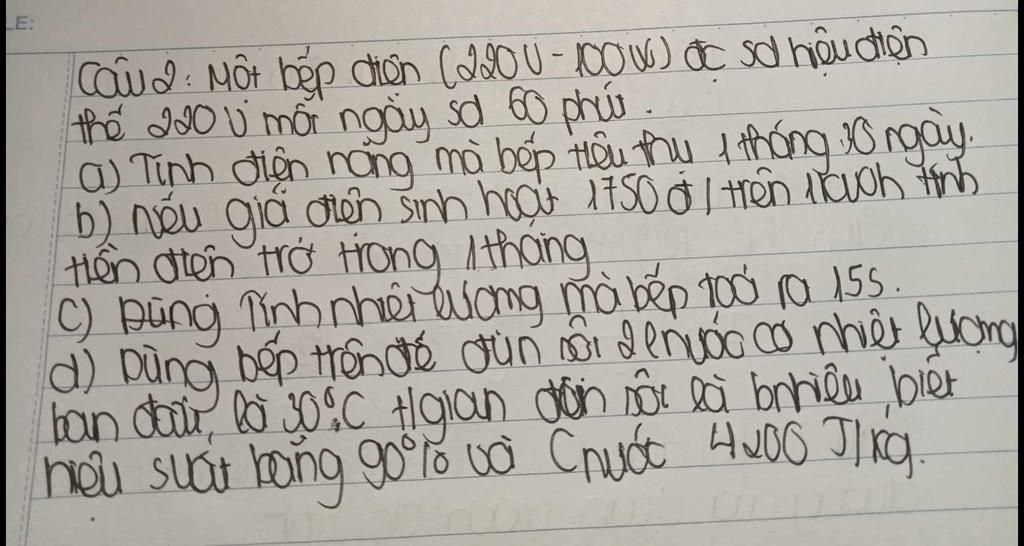 LE:
Câu 2: Một bếp điện (220V - 100W) đc sd hiệu điện
thế 220V mỗi ngày sd 60 phút.
a) Tính điện năng mà bếp tiêu thụ 1 tháng 30 ngày.
b) nếu giá điện sinh hoạt 1750đ / trên 1kwh tính
tiền điện trở trong 1 tháng
c) Dùng Tính nhiệt lượng mà bếp toả ra 15s.
d) Dùng bếp trên để đun sôi 2l nước có nhiệt lượng
ban đầu là 30°C t/gian đun sôi là bnhiêu biết
hiệu suất bằng 90% và Cnước 4200 J/kg.